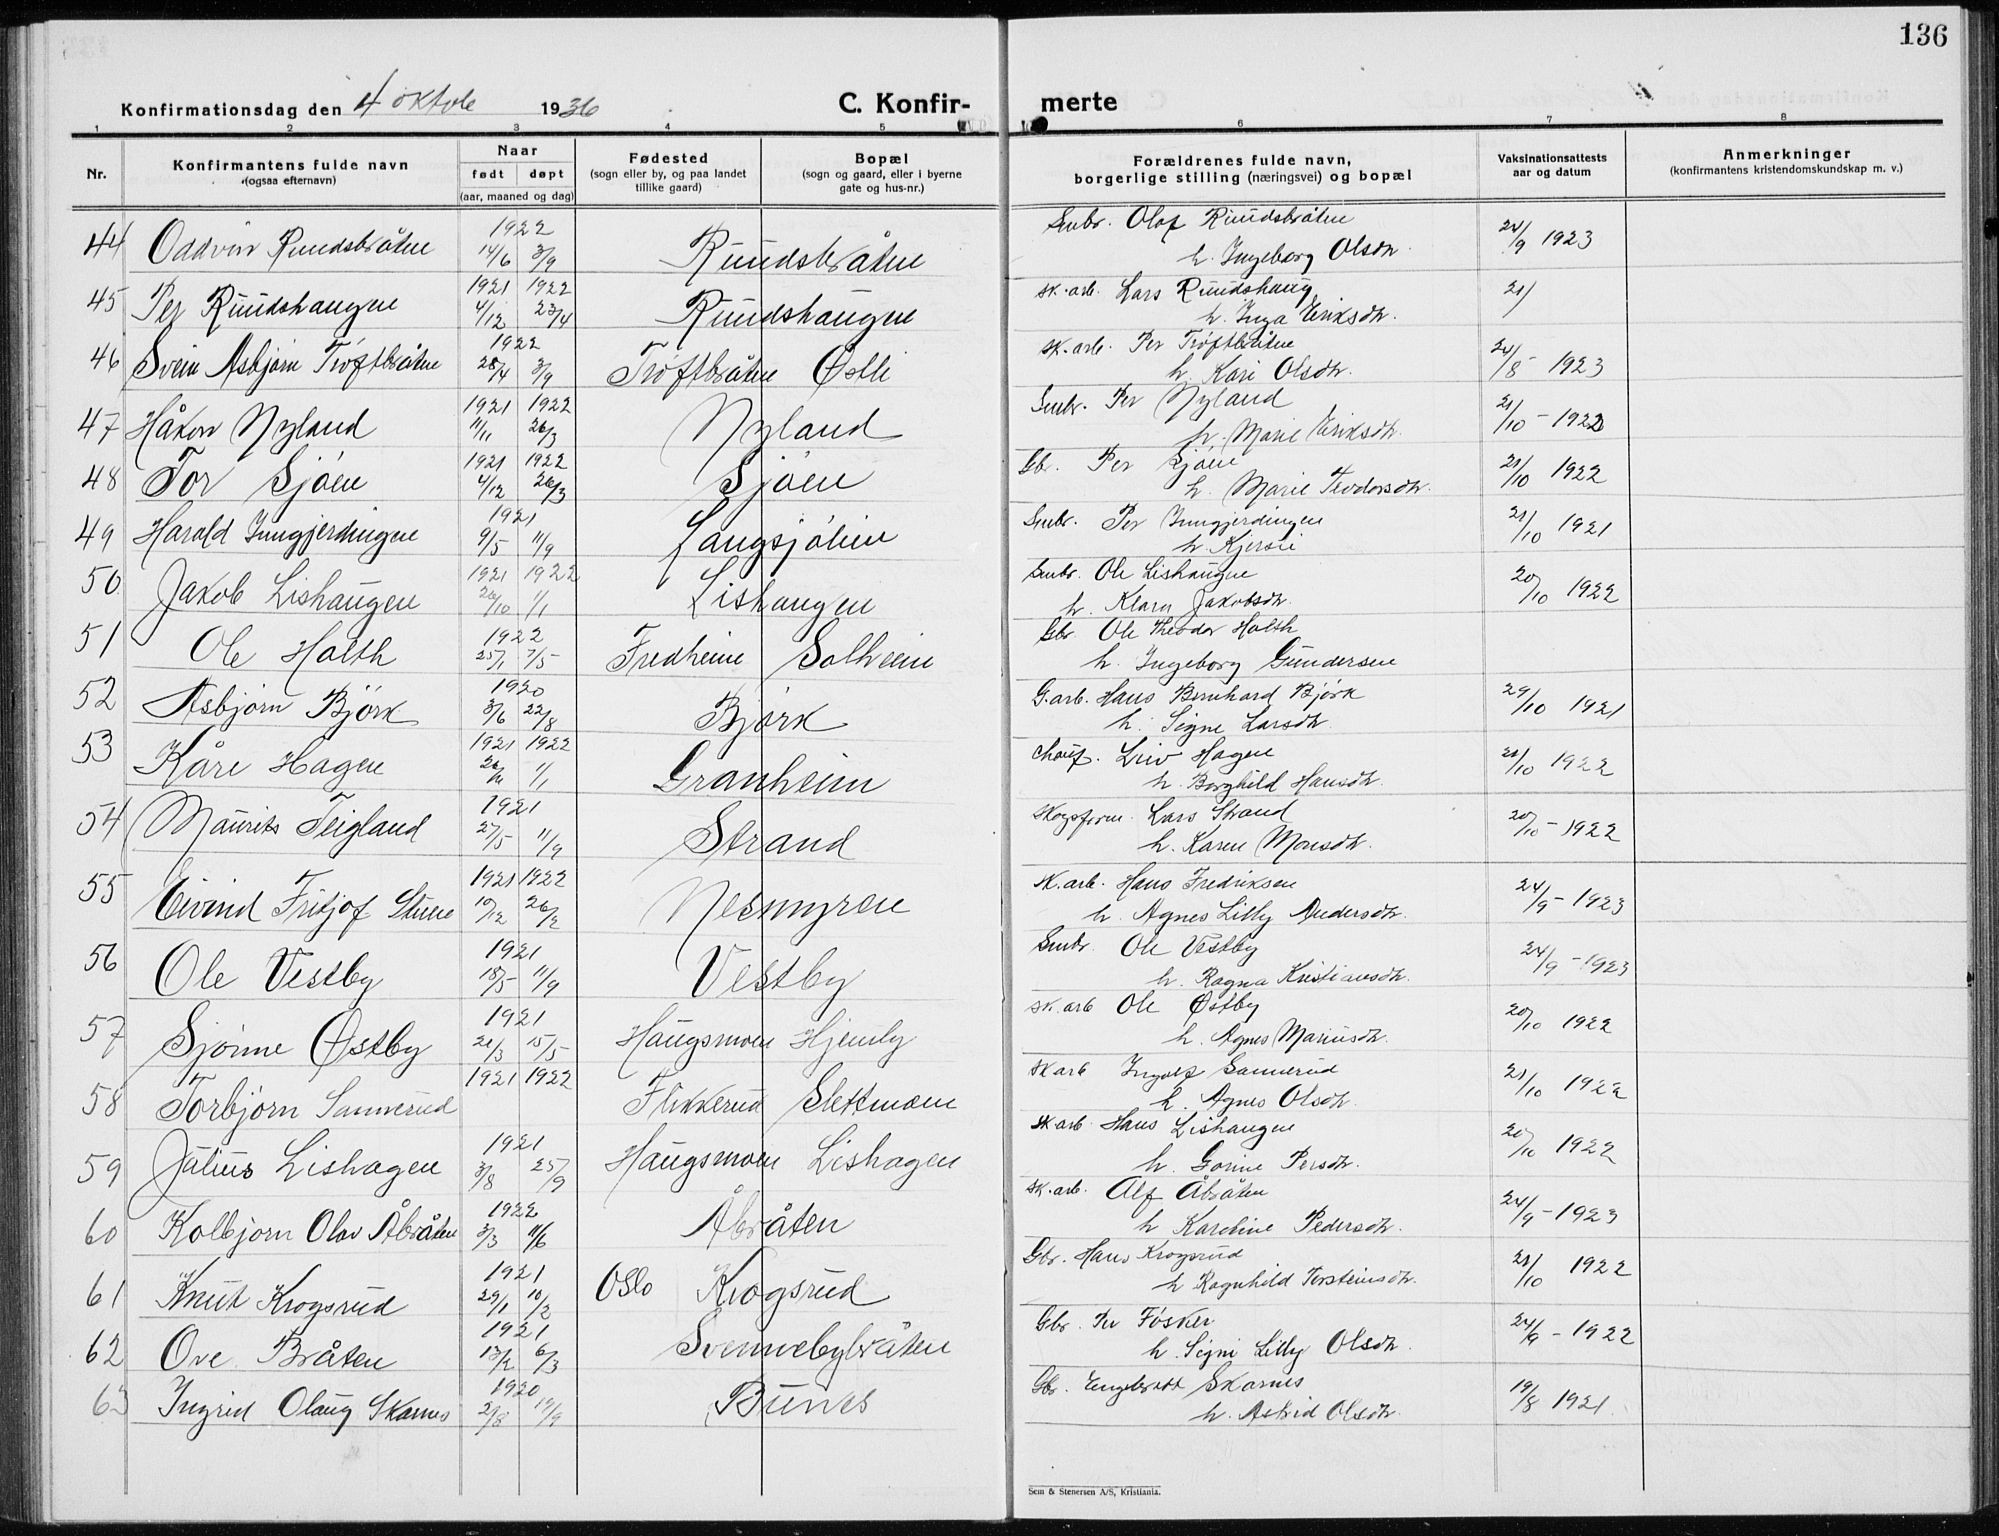 136
Konfirmationsdag den 4 oktob 1936
C. Konfirmerte
1 2 3 4 5 6 7 8
Nr. Konfirmantens fulde navn (ogsaa efternavn) Naar født døpt (aar, maaned og dag) Fødested (sogn eller by, og paa landet tillike gaard) Bopæl (sogn og gaard, eller i byerne gate og hus-nr.) Forældrenes fulde navn, borgerlige stilling (næringsvei) og bopæl Vaksinationsattests aar og datum Anmerkninger (konfirmantens kristendomskundskap m. v.)
44 Oddvin Ruudsbråten 1922 14/6 3/9 Ruudsbråten Smbr. Olof Ruudsbråten 24/9 1923
h. Ingeborg Olsdtr.
45 Per Ruudshaugen 1921 4/12 1922 23/4 Ruudshaugen sk.arb. Lars Ruudshaug 21/
h. Inga Eriksdtr.
46 Svein Asbjørn Tröftbråten 1922 28/4 3/9 Tröftbråten Østli sk.arb. Per Tröftbråten 24/8 1923
h. Kari Olsdtr.
47 Håkon Nyland 1921 11/11 1922 26/3 Nyland Smbr. Per Nyland 21/10 - 1922
h. Marie Eriksdtr.
48 Tor Sjöen 1921 4/12 1922 26/3 Sjöen Gbr. Per Sjöen 21/10 1922
h. Marie Teodorsdtr.
49 Harald Inngjerdingen 1921 9/5 11/9 Langsjölien Smbr. Per Inngjerdingen 21/10 1921
h. Kjersti
50 Jakob Lishaugen 1921 26/10 1922 1/1 Lishaugen Smbr. Ole Lishaugen 20/10 1922
h. Klara Jakobsdtr.
51 Ole Holth 1922 25/1 7/5 Fredheim Solheim Gbr. Ole Theodor Holth
h. Ingeborg Gundersen
52 Asbjörn Björk 1920 3/6 22/8 Björk G.arb. Hans Bernhard Björk 29/10 1921
h. Signe Larsdtr.
53 Kåre Hagen 1921 1922 1/1 Granheim Chauf. Hagen 21/10 1922
h. Borghild Hansdtr.
54 Maurits Teigland 1921 27/5 11/9 Strand Skogsform. Lars Strand 20/10 - 1922
h. Karen Monsdtr.
55 Eivind Fritjof Stuene 1921 19/12 1922 26/2 Nesmyren sk.arb. Hans Fredriksen 24/9 - 1923
h. Agnes Lilly Andersdtr.
56 Ole Vestby 1921 18/5 11/9 Vestby Smbr. Ole Vestby 24/9 - 1923
h. Ragna Kristiansdtr.
57 Sjönne Østby 1921 21/3 15/5 Haugsmoen Hjemly sk.arb Ole Østby 20/10 1922
h. Agnes Mariusdtr.
58 Torbjörn Sannerud 1921 1922 Flikkerud Slettmoen sk arb Ingolf Sannerud 21/10 1922
h. Agnes Olsdtr.
59 Julius Lishagen 1921 3/8 25/9 Haugsmoen Lishagen sk arb Hans Lishaugen 20/10 1922
h. Gorine Persdtr.
60 Kolbjørn Olav Åbråten 1922 3/3 11/6 Åbråten sk.arb. Alf Åbråten 24/9 - 1923
h Karoline Pedersdtr.
61 Knut Krogsrud 1921 29/1 10/2 Oslo Krogsrud Gbr. Hans Krogsrud 21/10 1922
h Ragnhild Torsteinsdtr.
62 Ove Bråten 1921 13/2 6/3 Svennebybråten Gbr. Per Fösker 24/9 - 1922
h. Signi Lilly Olsdtr.
63 Ingrid Olaug Skarnes 1920 2/8 19/9 Bunes Gbr. Engebrett Skarnes 19/8 1921
h. Astrid Olsdtr.
Sem & Stenersen A/S, Kristiania.